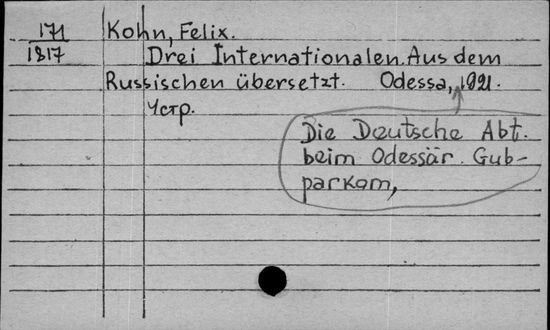 171 Kohn, Felix.
1817 Drei Internationalen. Aus dem
Russischen übersetzt. Odessa, 1921.
4стр.
Die Deutsche Abt.
beim Odessär. Gub-
parkom,